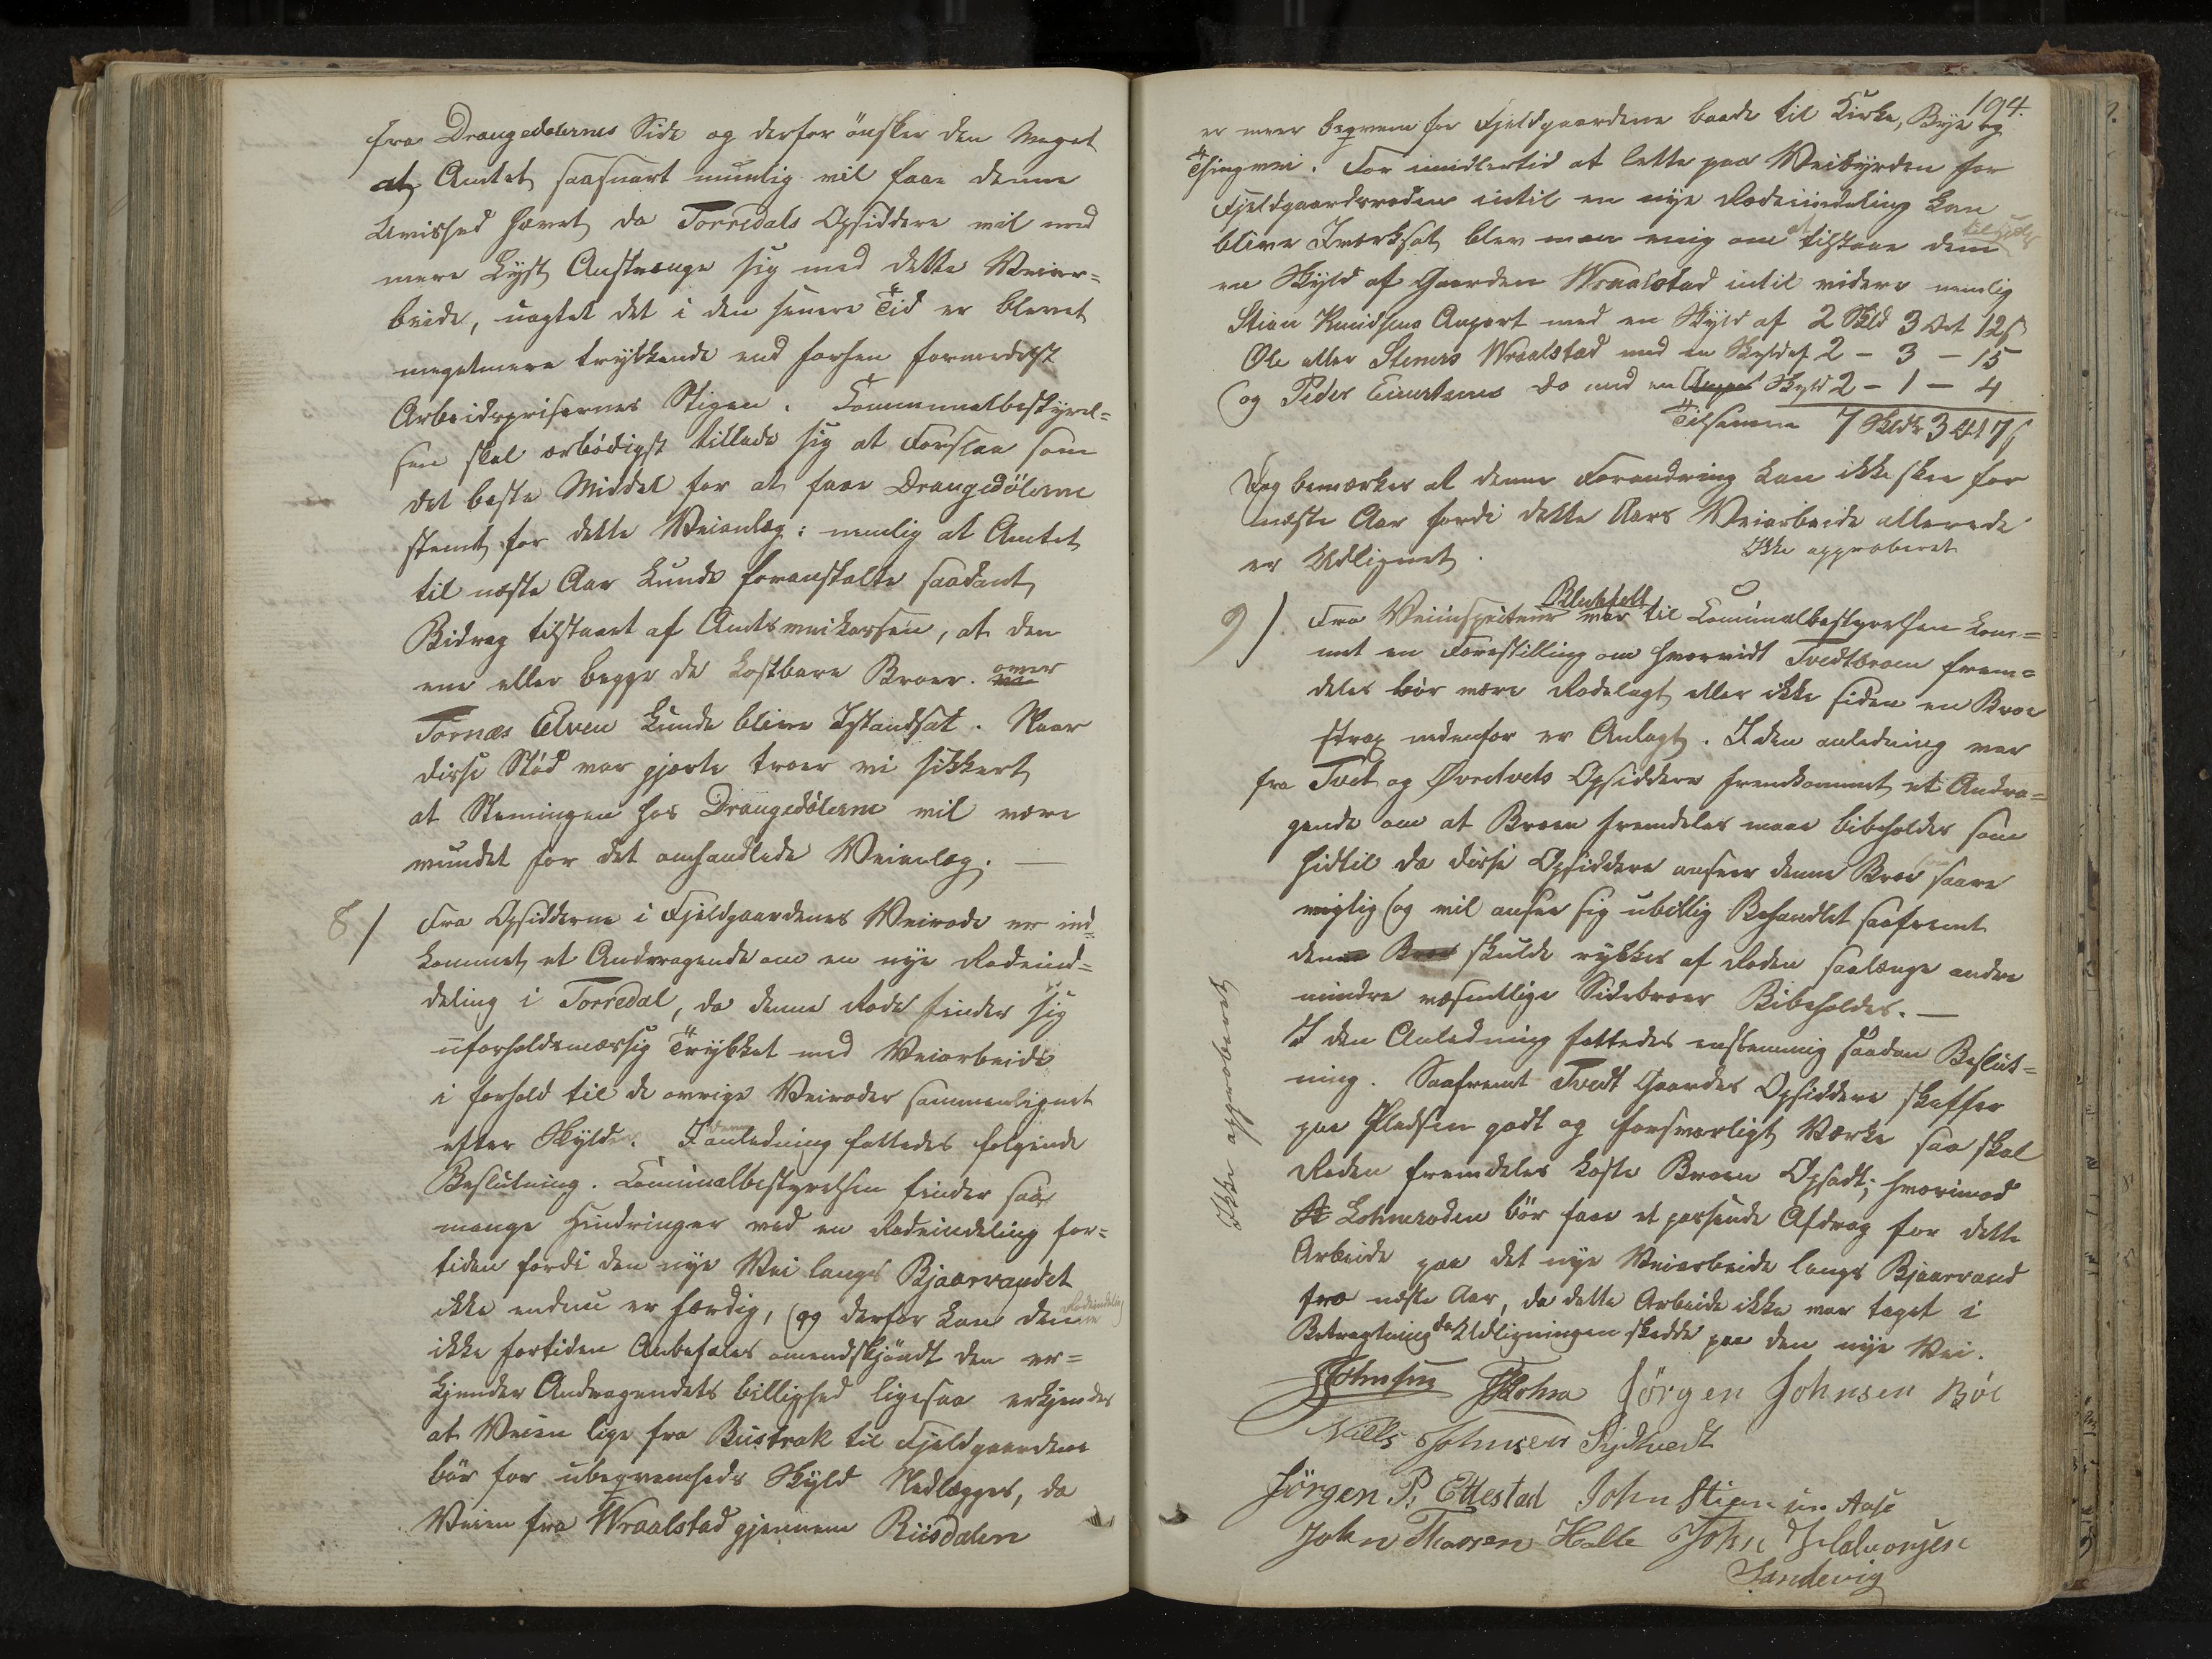 fra Drangedølernes Side og derfor ønsker den Meget
at Amtet saasnart muelig vil faae denne
Uvished hævet da Torredals Opsiddere vil med
mere Lyst Anstrænge sig med dette Veiar=
beide, uagtet det i den senere Tid er blevet
megetmere trykkende end forhen formedelst
Arbeidsprisernes Stigen. Communalbestyrel=
sen skal ærbødigst tillade sig at Forslaa som
det beste Middel for at faae Drangedølerne
stemt for dette Veianlæg: nemlig at Amtet
til næste Aar kunde foranstalte saadant
Bidrag tilstaaet af Amtsveikassen, at den
ene eller begge de kostbare Broer over
Tornæs Elven kunde blive Istandsat. Naar
disse Stød var gjorte troer vi sikkert
at Stemingen hos Drangedølerne vil være
vundet for det omhandlede Veianlæg. —
8/ Fra Opsidderne i Fjeldgaardenes Veirode er ind=
kommet et Andragende om en nye Rodeind=
deling i Torredal, da denne Rode finder sig
uforholdsmæssig Trykket med Veiarbeide
i forhold til de øvrige Veiroder sammenlignet
efter Skylden. I den anledning fattedes følgende
Beslutning. Communalbestyrelsen finder saa
mange Hindringer ved en Rodeindeling for=
tiden fordi den nye Vei langs Bjaarvandet
ikke endnu er færdig, og derfor kan denne Rodeindeling
ikke fortiden Anbefales omendskjøndt den er=
kjender Andragendets billighed ligesaa erkjendes
at Veien lige fra Bustrak til Fjeldgaardene
bør for ubeqvemheds Skyld Nedlægges, da
Veien fra Wraalstad gjennem Riisdalen
194.
er meer beqvem for Fjeldgaardene baade til Kirke, Bye og
Thingvei. For imidlertid at lette paa Veibyrden for
Fjeldgaardsroden intil en nye Rodeindeling kan
blive Iværksat blev man enig om at tilstaae dem tillagt
en Skyld af Gaarden Wraalstad intil videre nemlig
Stian Knudsens Anpart med en Skyld af 2 Skld 3 Ort 12 s
Ole eller Steners Wraalstad med en Skyld af 2 – 3 – 15
og Peder Eivertsens do med en Skyld 2 – 1 – 4
Tilsamen 7 Skldr 3 Ort 7 s
Dog bemærkes at denne Forandring kan ikke skee før
næste Aar fordi dette Aars Veiarbeide allerede
er Udlignet.
Ikke approberet
9/ Fra Veiinspecteur Blehfelt var til Comunalbestyrelsen kom=
met en Forestilling om hvorvidt Tvedtbroen frem=
deles bør være Rodelagt eller ikke siden en Broe
strax nedenfor er Anlagt. I den anledning var
fra Tvet og Øvretvets Opsiddere fremkommet et Andra=
gende om at Broen fremdeles maae bibeholdes som
hidtil da disse Opsiddere anseer denne Broe saare
vigtig og vil ansee sig ubillig Behandlet saafremt
denne Broe skulde rykkes af Roden saalænge andre
mindre væsentlige Sidebroer Bibeholdes. —
I den Anledning fattedes enstemmig saadan Beslut=
ning. Saafremt Tvedt Gaardes Opsiddere skaffer
paa Pladsen godt og forsvarligt Værke saa skal
Roden fremdeles koste Broen Opsadt; hvorimod
Lohneroden bør faae et passende Afdrag for dette
Arbeide paa det nye Veiarbeide langs Bjaarvand
fra næste Aar, da dette Arbeide ikke var taget i
Betragtning da Udligningen skedde paa den nye Vei.
Ikke approberet
Jørgen Johnsen Bøe
Niels Johnsen
Jörgen P. Ettestad John Stian sen Aase
John Thorsen Halle John Halvorsen
Sandevig